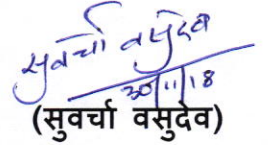 सुवर्चा वसुदेव
30/11/18
(सुवर्चा वसुदेव)